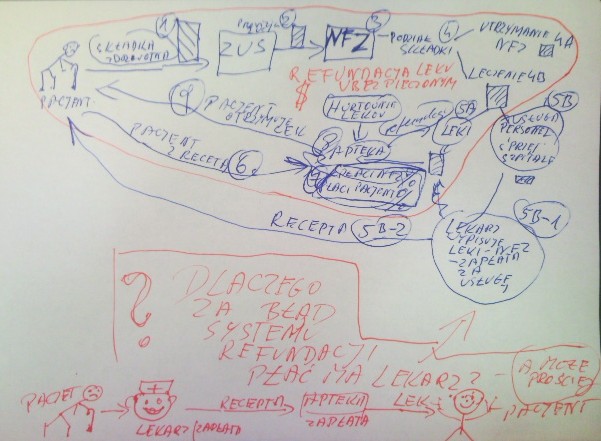 1
SKŁADKA
ZDROWOTNA
PACJENT
ZUS
2
NFZ
3
PODZIAŁ
SKŁADKI
4
UTRZYMANIE 4A
NFZ
LECZENIE 4B
REFUNDACJA LEKU
UBEZPIECZONYM
$
HURTOWNIA
LEKÓW
5A
LEKI
5B
USŁUGA
PERSONEL
SZPITALE
9
PACJENT
OTRZYMUJE
LEK
8
APTEKA
PACJENT
Z RECEPTĄ 6
7
PŁACI NFZ %
PŁACI PACJENT %
RECEPTA 5B-2
5B-1
LEKARZ
WYPISUJE
LEKI - NFZ
- ZAPŁATA
ZA
USŁUGĘ
?
DLACZEGO
ZA BŁĄD
SYSTEMU
REFUNDACJI
PŁACIĆ MA LEKARZ?
A MOŻE
PROŚCIEJ
PACJET
LEKARZ/ZAPŁATA
RECEPTA
APTEKA
ZAPŁATA
LEK
PACJENT